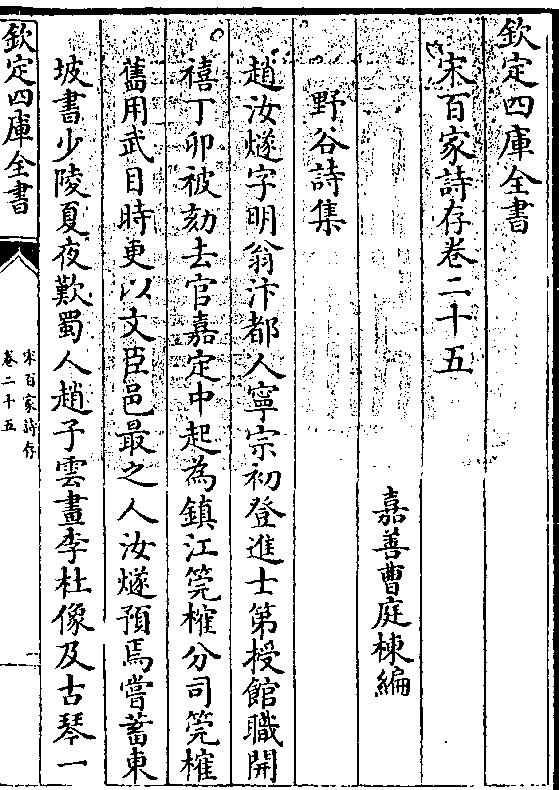 欽定四庫全書
宋百家詩存卷二十五
嘉善曹庭棟編
野谷詩集
趙汝燧字明翁汴都人寧宗初登進士第授館職開
禧丁卯被劾去官嘉定中起為鎮江筦榷分司筦榷
舊用武目時更以文臣邑最之人汝燧預焉嘗蓄東
坡書少陵夏夜歎蜀人趙子雲畫李杜像及古琴一
欽定四庫全書
宋百家詩存
卷二十五